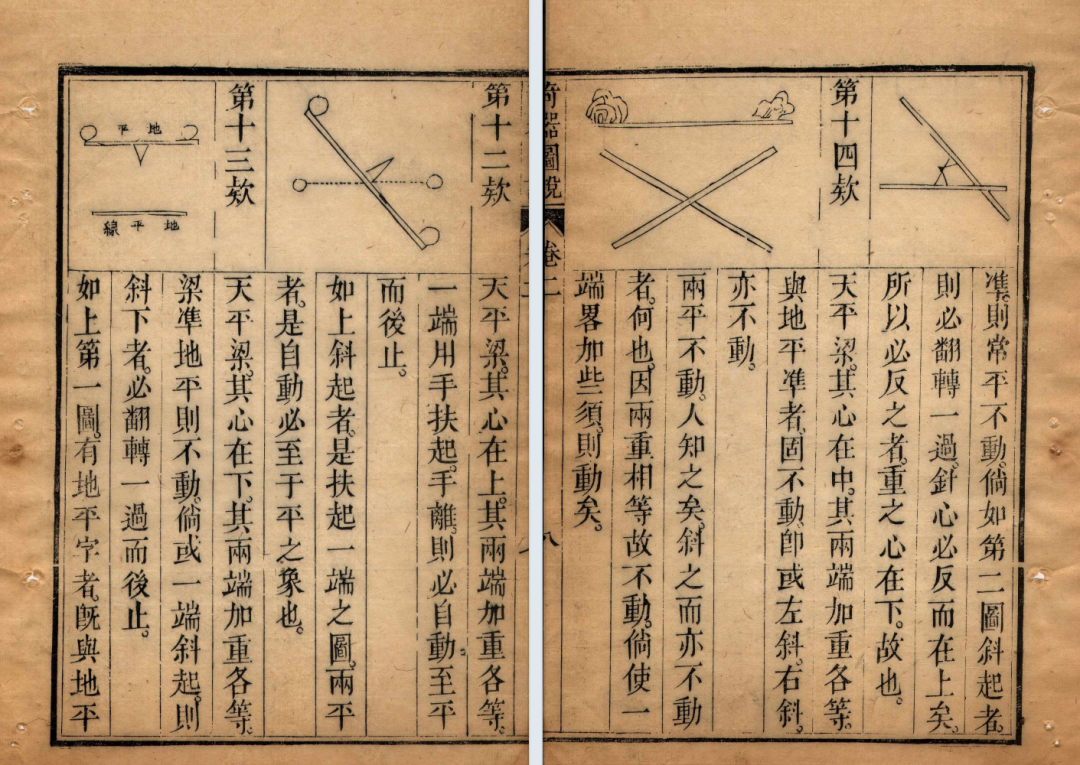 第十二欵
天平梁。其心在上。其兩端加重各等。
一端用手扶起。手離。則必自動。至平
而後止。
如上斜起者。是扶起一端之圖。兩平
者。是自動必至于平之象也。
第十三欵
天平梁。其心在下。其兩端加重各等。
梁凖地平則不動。倘或一端斜起。則
斜下者。必翻轉一過而後止。
如上第一圖。有地平字者。旣與地平
地平
地平線
奇器圖說
卷二
八
凖。則常平不動。倘如第二圖斜起者。
則必翻轉一過。針心必反而在上矣。
所以必反之者。重之心在下。故也。
第十四欵
天平梁。其心在中。其兩端加重各等。
與地平凖者。固不動。卽或左斜。右斜。
亦不動。
兩平不動。人知之矣。斜之而亦不動
者。何也。因兩重相等故不動。倘使一
端畧加些須。則動矣。